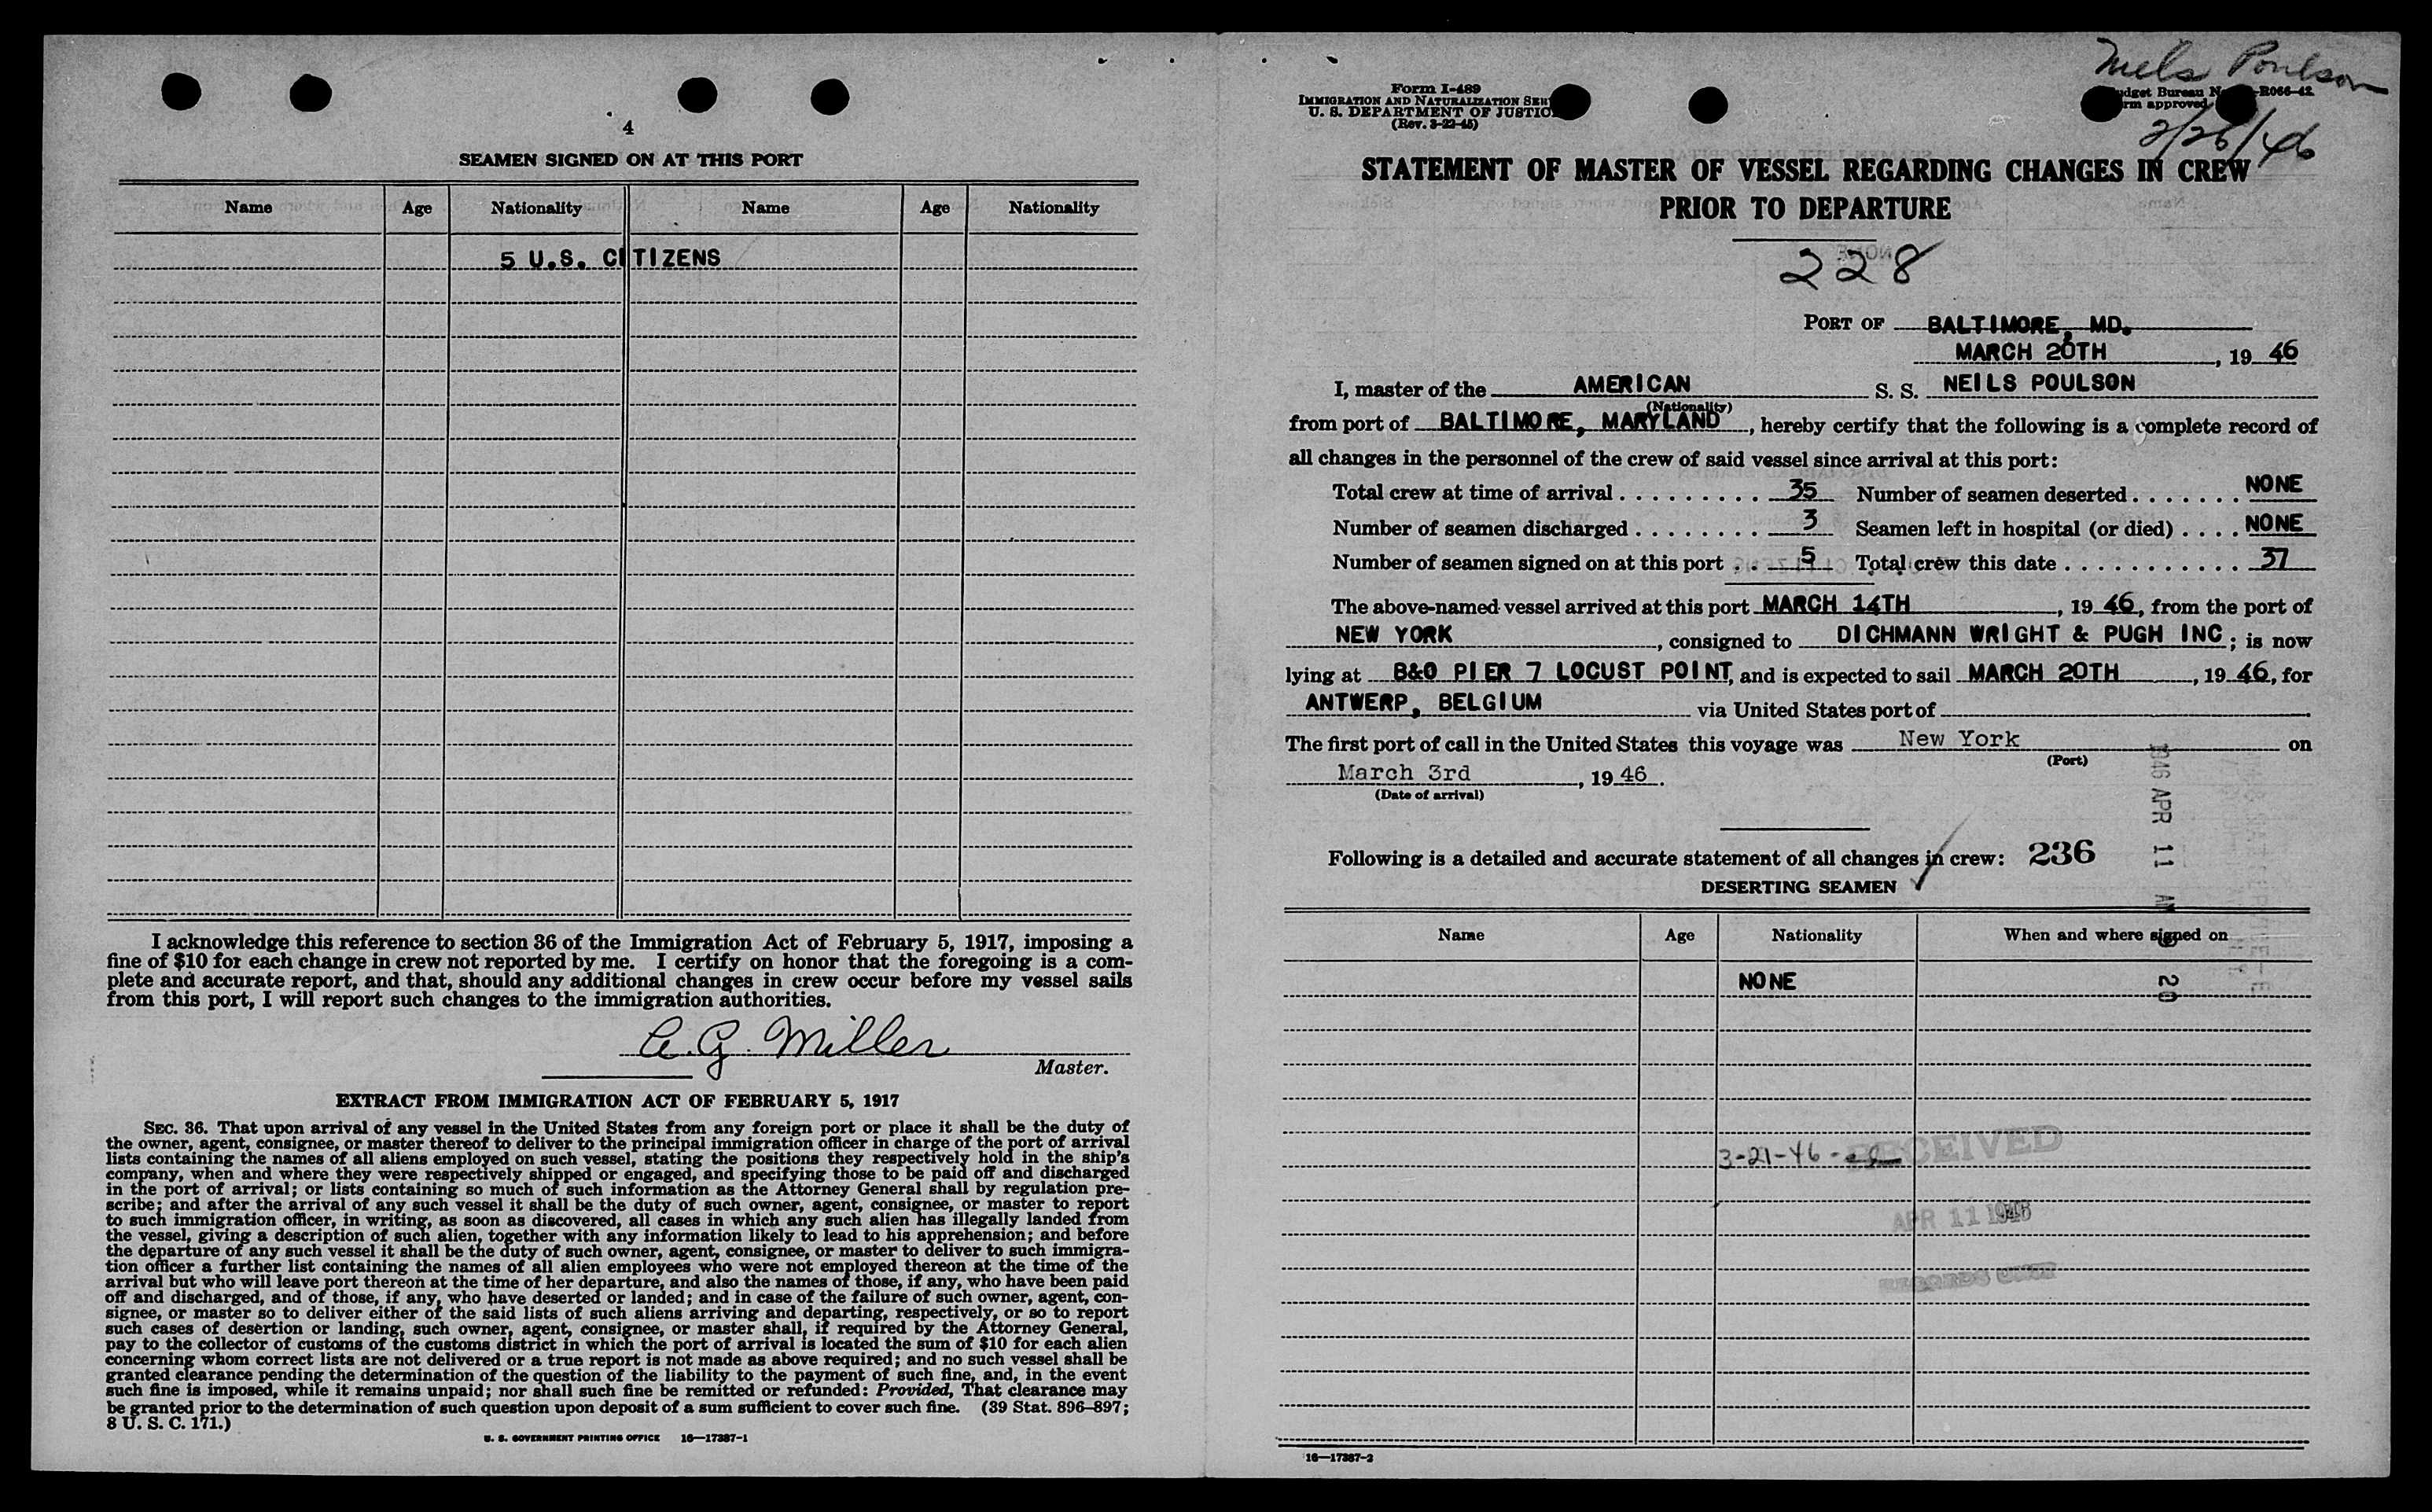 4
SEAMEN SIGNED ON AT THIS PORT
Name Age Nationality Name Age Nationality
5 U.S. CITIZENS
I acknowledge this reference to section 36 of the Immigration Act of February 5, 1917, imposing a
fine of $10 for each change in crew not reported by me. I certify on honor that the foregoing is a com-
plete and accurate report, and that, should any additional changes in crew occur before my vessel sails
from this port, I will report such changes to the immigration authorities.
A. G. Miller
Master.
EXTRACT FROM IMMIGRATION ACT OF FEBRUARY 5, 1917
SEC. 36. That upon arrival of any vessel in the United States from any foreign port or place it shall be the duty of
the owner, agent, consignee, or master thereof to deliver to the principal immigration officer in charge of the port of arrival
lists containing the names of all aliens employed on such vessel, stating the positions they respectively hold in the ship's
company, when and where they were respectively shipped or engaged, and specifying those to be paid off and discharged
in the port of arrival; or lists containing so much of such information as the Attorney General shall by regulation pre-
scribe; and after the arrival of any such vessel it shall be the duty of such owner, agent, consignee, or master to report
to such immigration officer, in writing, as soon as discovered, all cases in which any such alien has illegally landed from
the vessel, giving a description of such alien, together with any information likely to lead to his apprehension; and before
the departure of any such vessel it shall be the duty of such owner, agent, consignee, or master to deliver to such immigra-
tion officer a further list containing the names of all alien employees who were not employed thereon at the time of the
arrival but who will leave port thereon at the time of her departure, and also the names of those, if any, who have been paid
off and discharged, and of those, if any, who have deserted or landed; and in case of the failure of such owner, agent, con-
signee, or master so to deliver either of the said lists of such aliens arriving and departing, respectively, or so to report
such cases of desertion or landing, such owner, agent, consignee, or master shall, if required by the Attorney General,
pay to the collector of customs of the customs district in which the port of arrival is located the sum of $10 for each alien
concerning whom correct lists are not delivered or a true report is not made as above required; and no such vessel shall be
granted clearance pending the determination of the question of the liability to the payment of such fine, and, in the event
such fine is imposed, while it remains unpaid; nor shall such fine be remitted or refunded: Provided, That clearance may
be granted prior to the determination of such question upon deposit of a sum sufficient to cover such fine. (39 Stat. 896–897;
8 U. S. C. 171.)
U. S. GOVERNMENT PRINTING OFFICE 16—17387-1
Niels Poulson
2/26/46
Form I-489
IMMIGRATION AND NATURALIZATION SER
U. S. DEPARTMENT OF JUSTIC
(Rev. 3-22-45)
dget Bureau N R066-42
rm approved
STATEMENT OF MASTER OF VESSEL REGARDING CHANGES IN CREW
PRIOR TO DEPARTURE
228
PORT OF BALTIMORE, MD.
MARCH 20TH, 19 46
I, master of the AMERICAN S. S. NEILS POULSON
(Nationality)
from port of BALTIMORE, MARYLAND, hereby certify that the following is a complete record of
all changes in the personnel of the crew of said vessel since arrival at this port:
Total crew at time of arrival . . . . . . . . . . 35 Number of seamen deserted . . . . . . . NONE
Number of seamen discharged . . . . . . . . 3 Seamen left in hospital (or died) . . . . NONE
Number of seamen signed on at this port . . 5 Total crew this date . . . . . . . . . . . . 37
The above-named vessel arrived at this port MARCH 14TH, 19 46, from the port of
NEW YORK, consigned to DICHMANN WRIGHT & PUGH INC; is now
lying at B&O PIER 7 LOCUST POINT, and is expected to sail MARCH 20TH, 19 46, for
ANTWERP, BELGIUM via United States port of
The first port of call in the United States this voyage was New York on
(Port)
March 3rd, 19 46.
(Date of arrival)
Following is a detailed and accurate statement of all changes in crew: 236
1946 APR 11 AM 9 20
DESERTING SEAMEN
Name Age Nationality When and where signed on
NONE
3-21-46
RECEIVED
APR 11 1946
RECORDS UNIT
16—17387-2